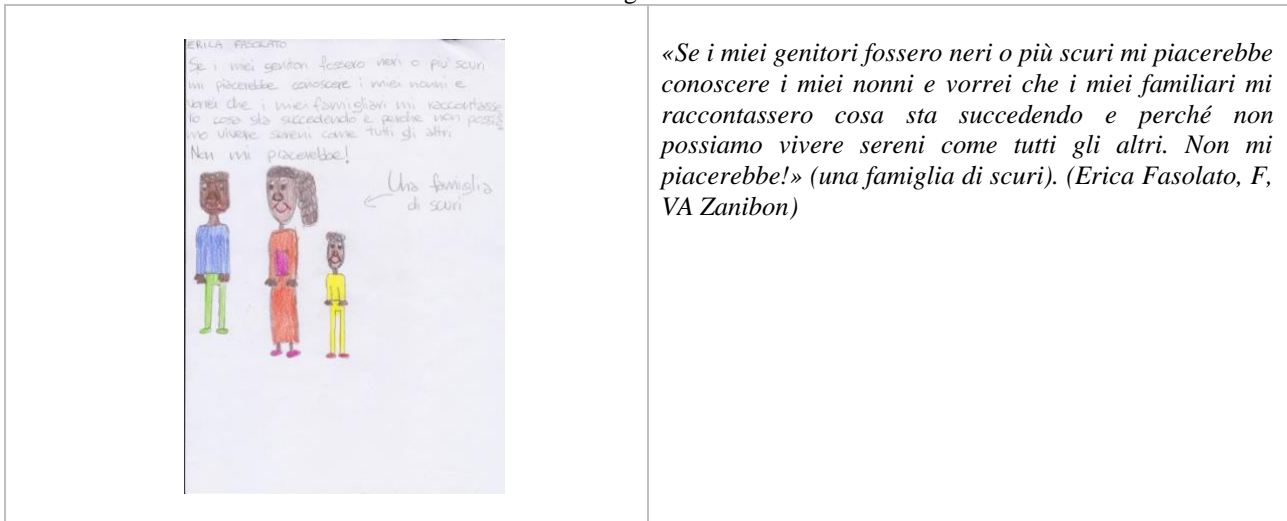 ERICA FASOLATO
Se i miei genitori fossero neri o più scuri
mi piacerebbe conoscere i miei nonni e
vorrei che i miei famigliari mi raccontasse
ro cosa sta succedendo e perché non possia
mo vivere sereni come tutti gli altri
Non mi piacerebbe!
Una famiglia
di scuri
«Se i miei genitori fossero neri o più scuri mi piacerebbe
conoscere i miei nonni e vorrei che i miei familiari mi
raccontassero cosa sta succedendo e perché non
possiamo vivere sereni come tutti gli altri. Non mi
piacerebbe!» (una famiglia di scuri). (Erica Fasolato, F,
VA Zanibon)